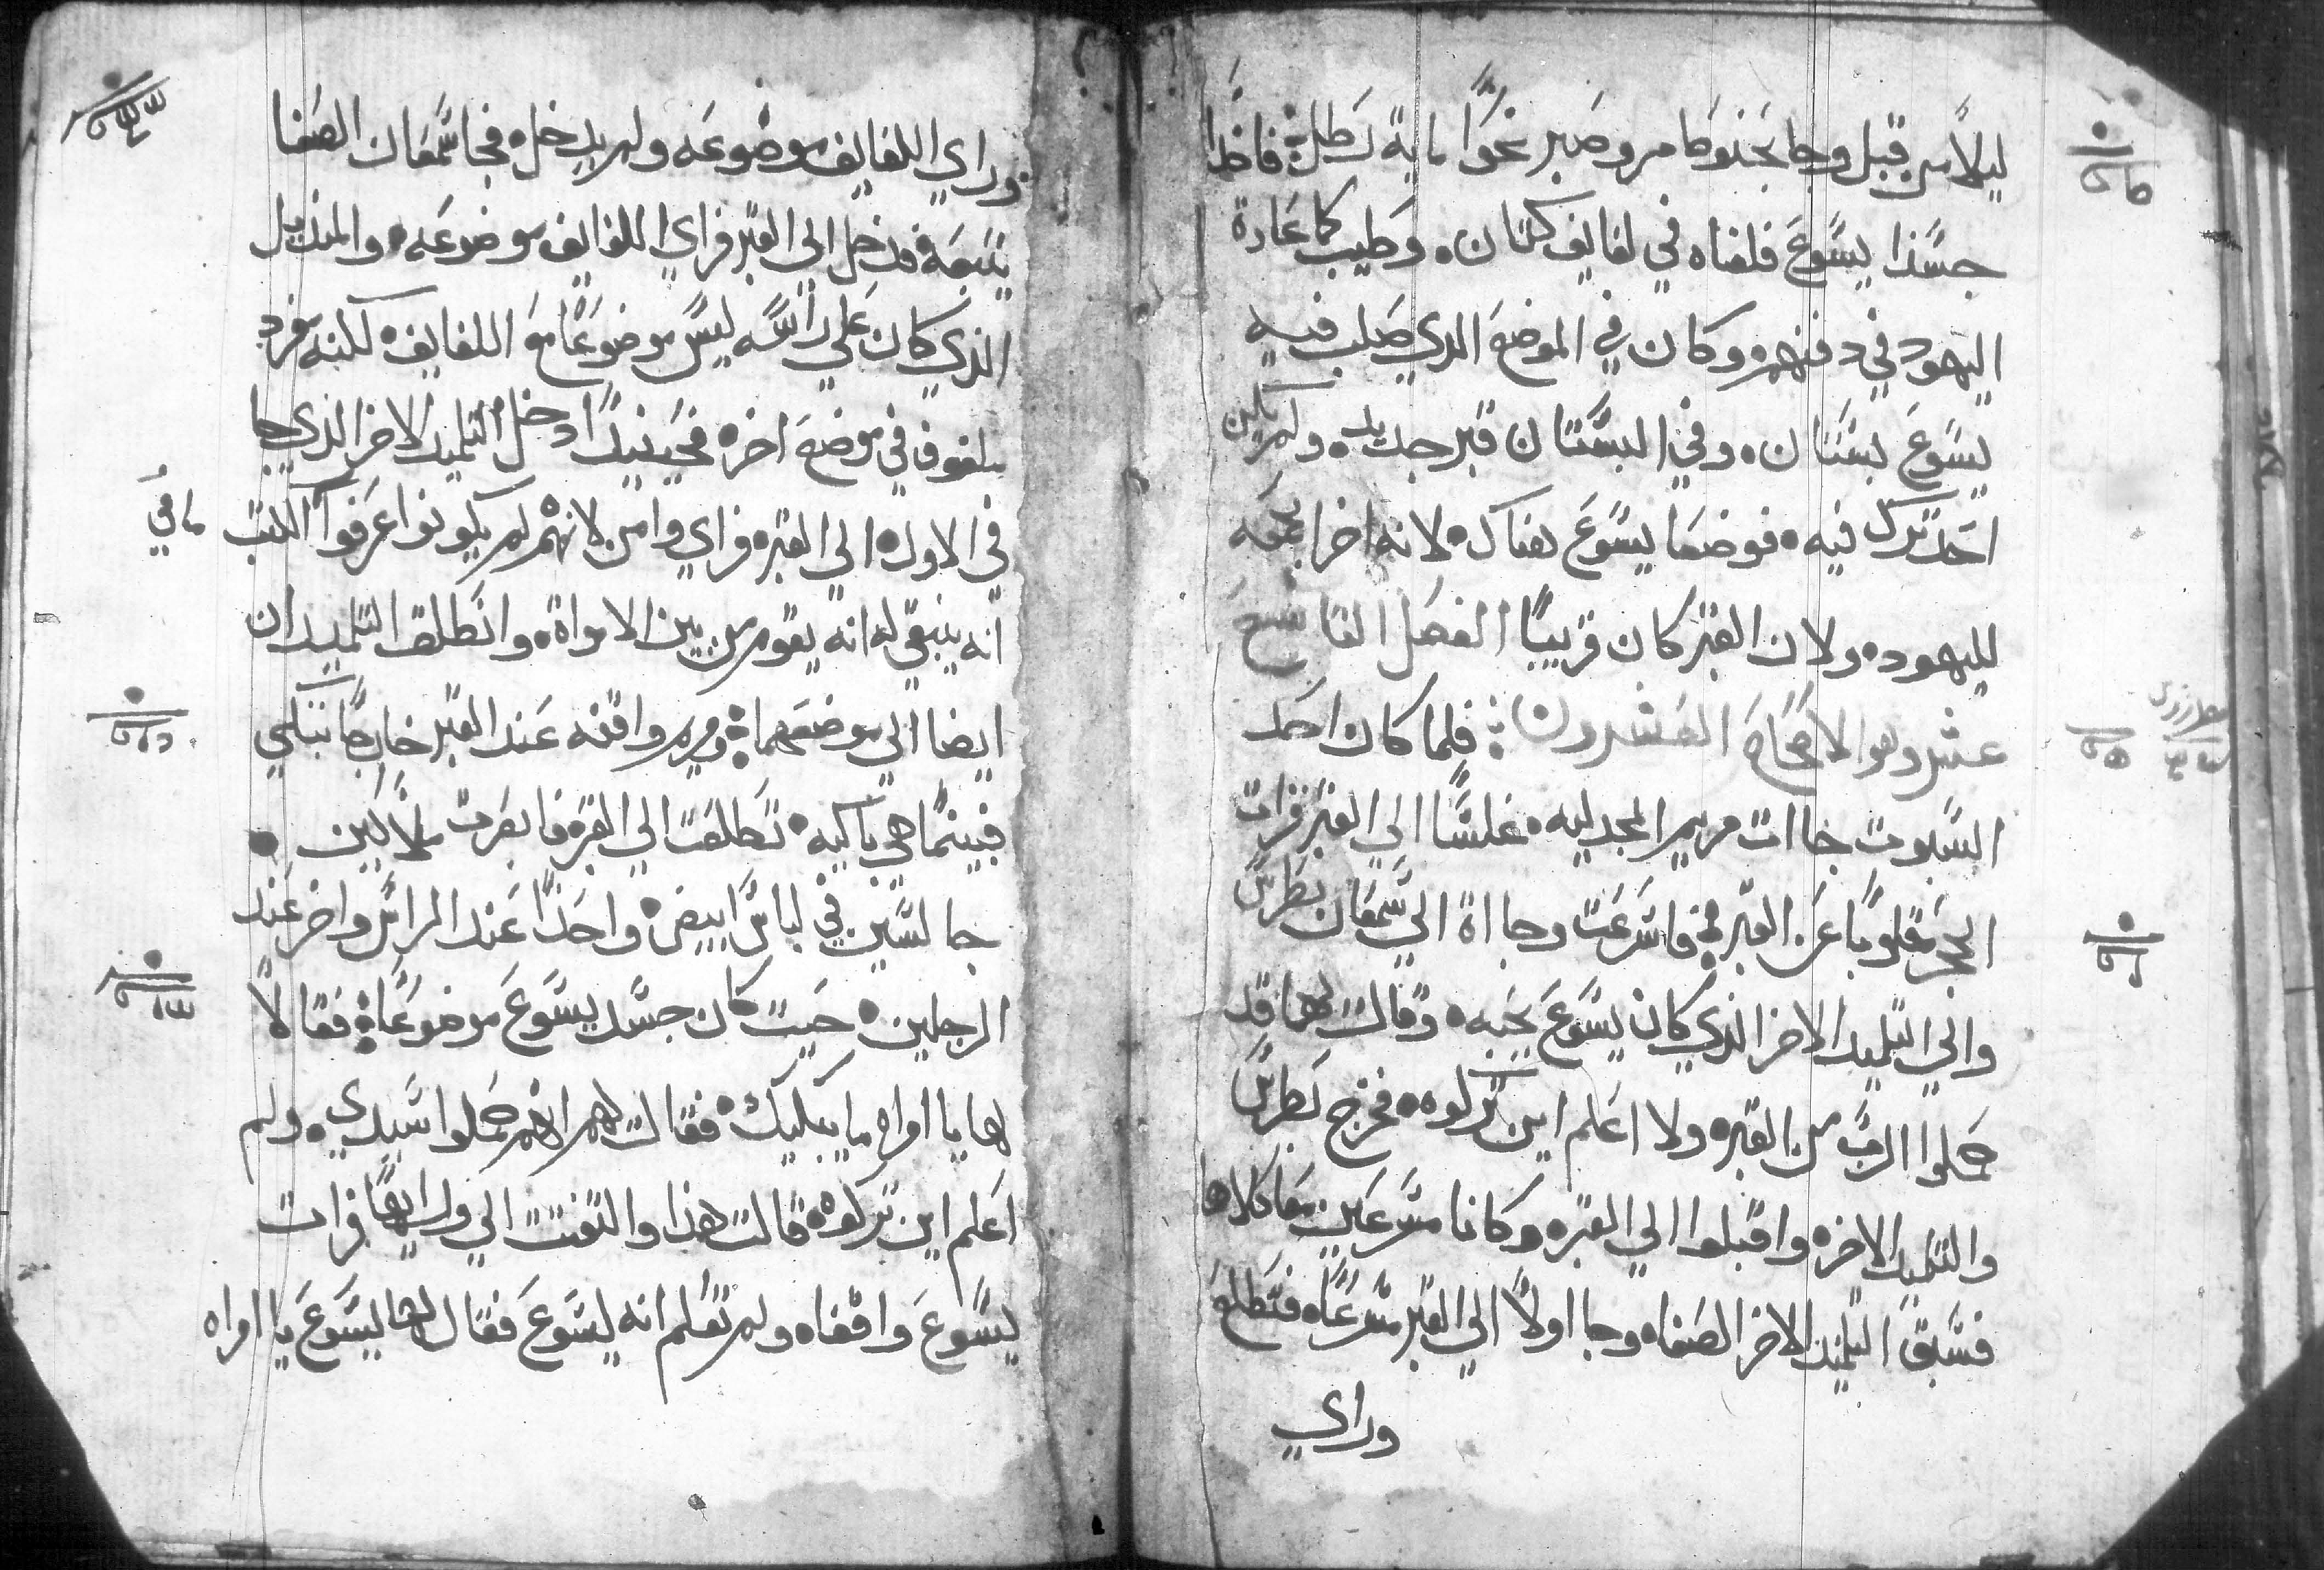 ليلاً من قبل وجا بحنوط مر وصبر نحوًا ماية رطل فاخدا
جسّدا يسَّوعَ فلفاه في لفايف كتان وطيب كما عَادة
اليهود في دفنهم وكان في الموضعَ الدي صَلب فيه
يسَّوعَ بسَّتان وفي البسَّتان قبر جديد ولم يكن
احَد ترك فيه فوضعَا يسَّوعَ هناك لانه اخر الجمعَه
لليهود ولان القبر كان قريبًا الفصَل التاسَع
عشر وهو الاصَحَاحَ العَشرون فلما كان احَد
السَّبوت جاات مريم المجدليه غلسًّا الي القبر فرات
الحجر مقلوبًا عَن القبر فاسَّرعَت وجااة الي سَّمعَان بطرسَّ
والي التلميد الاخر الذي كان يسَّوعَ يحَبه وقالت لهما قد
حَملوا الرب من القبر ولا اعَلم اين تركوه فخرج بطرسَّ
والتلميد الاخر واقبلوا الي القبر وكانا مسَّرعَين معَا كلاهما
فسَّبق التلميذ الاخر الصَفا وجا اولاً الي القبر مسَّرعًَا فتطلعَ
وراي
وراي اللفايف موضوعَه ولم يدخل فجا سَّمعَان الصَفا
يتبعَه فدخل الي القبر فراي اللفايف موضوعَه والمنديل
الذي كان عَلي راسَّه ليسَّ موضوعًَا معَ اللفايف لكنه مفرد
ملفوف في موضعَ اخر فحَينيدًا دخل التلميد الاخر الذي جا
في الاول الي القبر فراي وامن لانهم لم يكونوا عَرفوا الكتب
مافي
انه ينبغي له انه يقوم من بين الامواة وانطلق التلميدان
ايضا الي موضعَهما ومريم واقفه عَند القبر خارجًا تبكي
فبينما هي باكيه تطلعَت الي القبر فابصَرت ملاكين
جالسَّين في لباسَّ ابيض واحَدًا عَند الراسَّ واخر عَند
الرجلين حَيت كان جسَّد يسَّوعَ موضوعًَا فقالاً
لها يا امراه ما يبكيك فقالت لهم انهم حَملوا سَّيدي ولم
اعَلم اين تركوه قالت هذا والتفتت الي ورايها فرات
يسَّوعَ واقفا ولم تعَلم انه يسَّوعَ فقال لها يسَّوعَ يا امراه